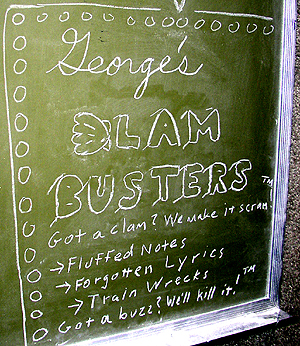 George's
CLAM
BUSTERS™
Got a clam? We make it scram.
→Fluffed Notes
→Forgotten Lyrics
→Train Wrecks
Got a buzz? We'll kill it!™